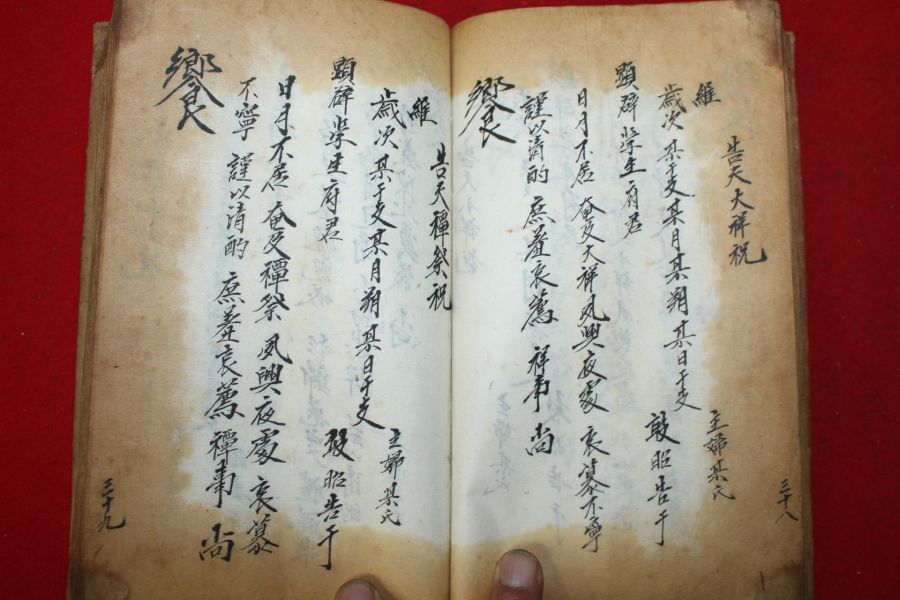 告天大祥祝
維
歲次 某干支某月某朔某日干支 主婦某氏
敢昭告于
顯辟學生府君
日月不居 奄及大祥 夙興夜處 哀慕不寧
謹以清酌 庶羞哀薦 祥事 尚
饗
三十八
告天禫祭祝
維
歲次 某干支某月朔某日干支 主婦某氏
敢昭告于
顯辟學生府君
日月不居 奄及禫祭 夙興夜處 哀慕
不寧 謹以清酌 庶羞哀薦 禫事 尚
饗
三十九